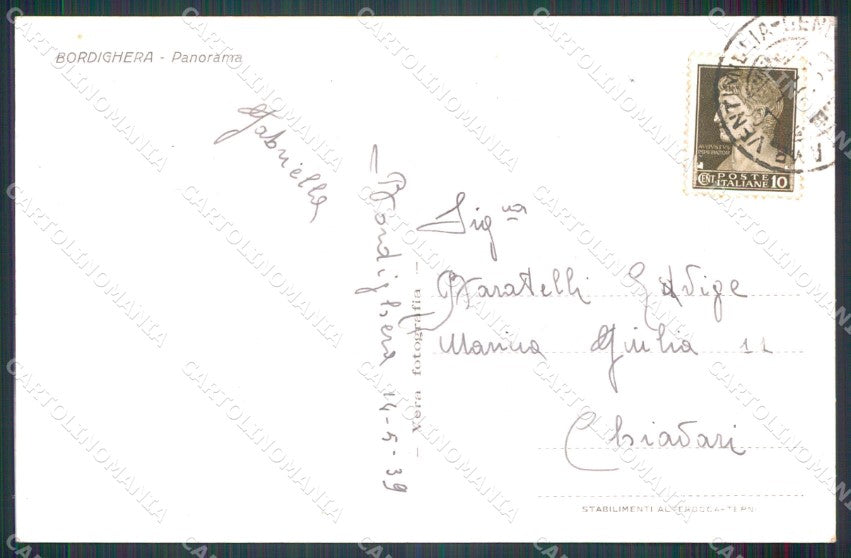 BORDIGHERA - Panorama
Gabriella
Bordighera 14-5-39
Vera fotografia
Sig.na
Baratelli Edvige
Marina Giulia 11
Chiavari
POSTE
CENT ITALIANE 10
VENTIMIGLIA-GENO
AMB
STABILIMENTI ALTEROCCA-TERNI
CARTOLINOMANIA